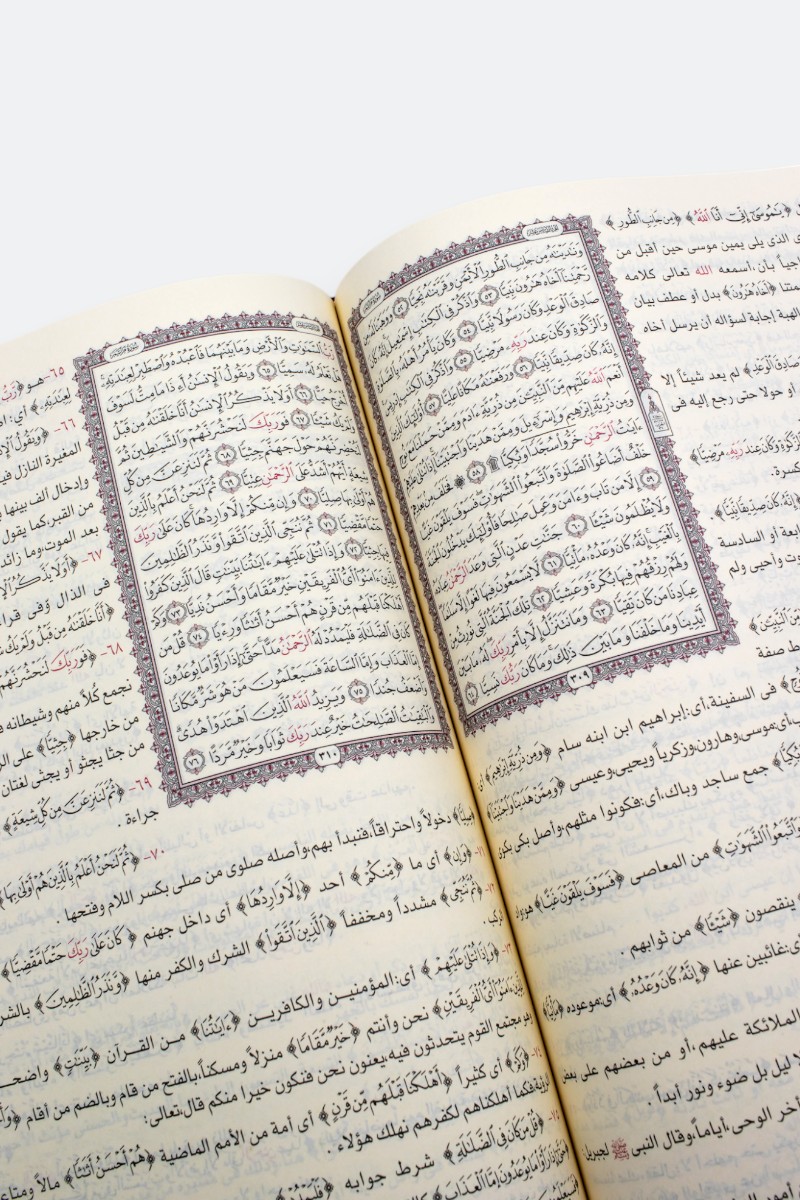 ﴿يَٰمُوسَىٰٓ إِنِّىٓ أَنَا ٱللَّهُ﴾ ﴿مِن جَانِبِ ٱلطُّورِ﴾
الذى يلى يمين موسى حين أقبل من
بأن،أسمعه الله تعالى كلامه
﴿أَخَاهُ هَٰرُونَ﴾ بدل أو عطف بيان
إجابة لسؤاله أن يرسل أخاه
صَادِقَ ٱلْوَعْدِ﴾ لم يعد شيئاً إلا
أو حولا حتى رجع إليه فى
وَٱلزَّكَوٰةِ وَكَانَ عِندَ رَبِّهِۦ مَرْضِيًّا﴾
إِنَّهُۥ كَانَ صِدِّيقًا نَّبِيًّا﴾
أو السادسة
وأحيى ولم
مِّنَ ٱلنَّبِيِّـۧنَ﴾
صفة
وَنَٰدَيْنَٰهُ مِن جَانِبِ ٱلطُّورِ ٱلْأَيْمَنِ وَقَرَّبْنَٰهُ نَجِيًّا ٥٢ وَوَهَبْنَا لَهُۥ
مِن رَّحْمَتِنَآ أَخَاهُ هَٰرُونَ نَبِيًّا ٥٣ وَٱذْكُرْ فِى ٱلْكِتَٰبِ إِسْمَٰعِيلَ إِنَّهُۥ كَانَ
صَادِقَ ٱلْوَعْدِ وَكَانَ رَسُولًا نَّبِيًّا ٥٤ وَكَانَ يَأْمُرُ أَهْلَهُۥ بِٱلصَّلَوٰةِ
وَٱلزَّكَوٰةِ وَكَانَ عِندَ رَبِّهِۦ مَرْضِيًّا ٥٥ وَٱذْكُرْ فِى ٱلْكِتَٰبِ إِدْرِيسَ
إِنَّهُۥ كَانَ صِدِّيقًا نَّبِيًّا ٥٦ وَرَفَعْنَٰهُ مَكَانًا عَلِيًّا ٥٧ أُو۟لَٰٓئِكَ ٱلَّذِينَ
أَنْعَمَ ٱللَّهُ عَلَيْهِم مِّنَ ٱلنَّبِيِّـۧنَ مِن ذُرِّيَّةِ ءَادَمَ وَمِمَّنْ حَمَلْنَا مَعَ نُوحٍ
وَمِن ذُرِّيَّةِ إِبْرَٰهِيمَ وَإِسْرَٰٓءِيلَ وَمِمَّنْ هَدَيْنَا وَٱجْتَبَيْنَآ إِذَا تُتْلَىٰ عَلَيْهِمْ
ءَايَٰتُ ٱلرَّحْمَٰنِ خَرُّوا۟ سُجَّدًا وَبُكِيًّا ۩ ٥٨ ۞ فَخَلَفَ مِنۢ بَعْدِهِمْ
خَلْفٌ أَضَاعُوا۟ ٱلصَّلَوٰةَ وَٱتَّبَعُوا۟ ٱلشَّهَوَٰتِ فَسَوْفَ يَلْقَوْنَ غَيًّا
٥٩ إِلَّا مَن تَابَ وَءَامَنَ وَعَمِلَ صَٰلِحًا فَأُو۟لَٰٓئِكَ يَدْخُلُونَ ٱلْجَنَّةَ
وَلَا يُظْلَمُونَ شَيْـًٔا ٦٠ جَنَّٰتِ عَدْنٍ ٱلَّتِى وَعَدَ ٱلرَّحْمَٰنُ عِبَادَهُۥ
بِٱلْغَيْبِ إِنَّهُۥ كَانَ وَعْدُهُۥ مَأْتِيًّا ٦١ لَّا يَسْمَعُونَ فِيهَا لَغْوًا إِلَّا سَلَٰمًا
وَلَهُمْ رِزْقُهُمْ فِيهَا بُكْرَةً وَعَشِيًّا ٦٢ تِلْكَ ٱلْجَنَّةُ ٱلَّتِى نُورِثُ مِنْ
عِبَادِنَا مَن كَانَ تَقِيًّا ٦٣ وَمَا نَتَنَزَّلُ إِلَّا بِأَمْرِ رَبِّكَ لَهُۥ مَا بَيْنَ
أَيْدِينَا وَمَا خَلْفَنَا وَمَا بَيْنَ ذَٰلِكَ وَمَا كَانَ رَبُّكَ نَسِيًّا ٦٤
٣٠٩
فى السفينة،أى:إبراهيم ابن ابنه سام ﴿وَمِن ذُرِّيَّةِ إِبْرَٰهِيمَ﴾ أى
أى،موسى،وهارون،وزكرياً ويحيى،وعيسى ﴿وَمِمَّنْ هَدَيْنَا وَٱجْتَبَيْنَآ﴾
جمع ساجد وباك،أى:فكونوا مثلهم،وأصل بكى بكوى
وَٱتَّبَعُوا۟ ٱلشَّهَوَٰتِ﴾ من المعاصى ﴿فَسَوْفَ يَلْقَوْنَ غَيًّا﴾ هو واد
ينقصون ﴿شَيْـًٔا﴾ من ثوابهم .
أى:غائبين عنها ﴿إِنَّهُۥ كَانَ وَعْدُهُۥ﴾ أى:موعوده ﴿مَأْتِيًّا﴾
الملائكة عليهم،أو من بعضهم على بعض
لا ليل بل ضوء ونور أبداً .
الوحى،أياماً،وقال النبى ﷺ لجبريل:
رَّبُّ ٱلسَّمَٰوَٰتِ وَٱلْأَرْضِ وَمَا بَيْنَهُمَا فَٱعْبُدْهُ وَٱصْطَبِرْ لِعِبَٰدَتِهِۦ
هَلْ تَعْلَمُ لَهُۥ سَمِيًّا ٦٥ وَيَقُولُ ٱلْإِنسَٰنُ أَءِذَا مَا مِتُّ لَسَوْفَ
أُخْرَجُ حَيًّا ٦٦ أَوَلَا يَذْكُرُ ٱلْإِنسَٰنُ أَنَّا خَلَقْنَٰهُ مِن قَبْلُ
وَلَمْ يَكُ شَيْـًٔا ٦٧ فَوَرَبِّكَ لَنَحْشُرَنَّهُمْ وَٱلشَّيَٰطِينَ ثُمَّ
لَنُحْضِرَنَّهُمْ حَوْلَ جَهَنَّمَ جِثِيًّا ٦٨ ثُمَّ لَنَنزِعَنَّ مِن كُلِّ
شِيعَةٍ أَيُّهُمْ أَشَدُّ عَلَى ٱلرَّحْمَٰنِ عِتِيًّا ٦٩ ثُمَّ لَنَحْنُ أَعْلَمُ بِٱلَّذِينَ
هُمْ أَوْلَىٰ بِهَا صِلِيًّا ٧٠ وَإِن مِّنكُمْ إِلَّا وَارِدُهَا كَانَ عَلَىٰ رَبِّكَ
حَتْمًا مَّقْضِيًّا ٧١ ثُمَّ نُنَجِّى ٱلَّذِينَ ٱتَّقَوا۟ وَّنَذَرُ ٱلظَّٰلِمِينَ
فِيهَا جِثِيًّا ٧٢ وَإِذَا تُتْلَىٰ عَلَيْهِمْ ءَايَٰتُنَا بَيِّنَٰتٍ قَالَ ٱلَّذِينَ كَفَرُوا۟
لِلَّذِينَ ءَامَنُوٓا۟ أَىُّ ٱلْفَرِيقَيْنِ خَيْرٌ مَّقَامًا وَأَحْسَنُ نَدِيًّا ٧٣ وَكَمْ
أَهْلَكْنَا قَبْلَهُم مِّن قَرْنٍ هُمْ أَحْسَنُ أَثَٰثًا وَرِءْيًا ٧٤ قُلْ مَن
كَانَ فِى ٱلضَّلَٰلَةِ فَلْيَمْدُدْ لَهُ ٱلرَّحْمَٰنُ مَدًّا حَتَّىٰٓ إِذَا رَأَوْا۟ مَا يُوعَدُونَ
إِمَّا ٱلْعَذَابَ وَإِمَّا ٱلسَّاعَةَ فَسَيَعْلَمُونَ مَنْ هُوَ شَرٌّ مَّكَانًا
وَأَضْعَفُ جُندًا ٧٥ وَيَزِيدُ ٱللَّهُ ٱلَّذِينَ ٱهْتَدَوْا۟ هُدًى
وَٱلْبَٰقِيَٰتُ ٱلصَّٰلِحَٰتُ خَيْرٌ عِندَ رَبِّكَ ثَوَابًا وَخَيْرٌ مَّرَدًّا ٧٦
٣١٠
٦٥- هـو ﴿رَّبُّ
لِعِبَٰدَتِهِۦ﴾ أى:
٦٦- ﴿وَيَقُولُ ٱلْإِ
المغيرة النازل فيه
وإدخال ألف بينها
من القبر،كما يقول
بعد الموت،وما زائد
٦٧- ﴿أَوَلَا يَذْكُرُ ٱلْإِ
فى الذال وفى قراء
﴿أَنَّا خَلَقْنَٰهُ مِن قَبْلُ وَلَمْ يَكُ
٦٨- ﴿فَوَرَبِّكَ لَنَحْشُرَنَّهُمْ
نجمع كلاً منهم وشيطانه
من خارجها ﴿جِثِيًّا﴾ على
من جثا يجثو أو يجثى لغتان
٦٩- ﴿ثُمَّ لَنَنزِعَنَّ مِن كُلِّ شِيعَةٍ﴾
جراءة .
٧٠- ﴿ثُمَّ لَنَحْنُ أَعْلَمُ بِٱلَّذِينَ هُمْ أَوْلَىٰ بِهَا﴾
﴿صِلِيًّا﴾ دخولاً واحتراقاً،فنبدأ بهم،وأصله صلوى من صلى بكسر اللام وفتحها .
٧١- ﴿وَإِن﴾ أى ما ﴿مِّنكُمْ﴾ أحد ﴿إِلَّا وَارِدُهَا﴾ أى داخل جهنم ﴿كَانَ عَلَىٰ رَبِّكَ حَتْمًا مَّقْضِيًّا﴾
٧٢- ﴿ثُمَّ نُنَجِّى﴾ مشدداً ومخففاً ﴿ٱلَّذِينَ ٱتَّقَوا۟﴾ الشرك والكفر منها ﴿وَّنَذَرُ ٱلظَّٰلِمِينَ﴾ بالشرك
٧٣- ﴿وَإِذَا تُتْلَىٰ عَلَيْهِمْ﴾ أى:المؤمنين والكافرين ﴿ءَايَٰتُنَا﴾ من القرآن ﴿بَيِّنَٰتٍ﴾
لِلَّذِينَ ءَامَنُوٓا۟ أَىُّ ٱلْفَرِيقَيْنِ﴾ نحن وأنتم ﴿خَيْرٌ مَّقَامًا﴾ منزلاً ومسكناً،بالفتح من قام وبالضم من أقام
وهو مجتمع القوم يتحدثون فيه،يعنون نحن فنكون خيرا منكم قال،تعالى:
٧٤- ﴿وَكَمْ﴾ أى كثيراً ﴿أَهْلَكْنَا قَبْلَهُم مِّن قَرْنٍ﴾ أى أمة من الأمم الماضية ﴿هُمْ أَحْسَنُ أَثَٰثًا﴾ مالاً ومتاعاً
فكما أهلكناهم لكفرهم نهلك هؤلاء .
٧٥- ﴿قُلْ مَن كَانَ فِى ٱلضَّلَٰلَةِ﴾ شرط جوابه ﴿فَلْيَمْدُدْ﴾
﴿حَتَّىٰٓ إِذَا رَأَوْا۟ مَا يُوعَدُونَ إِمَّا ٱلْعَذَابَ﴾